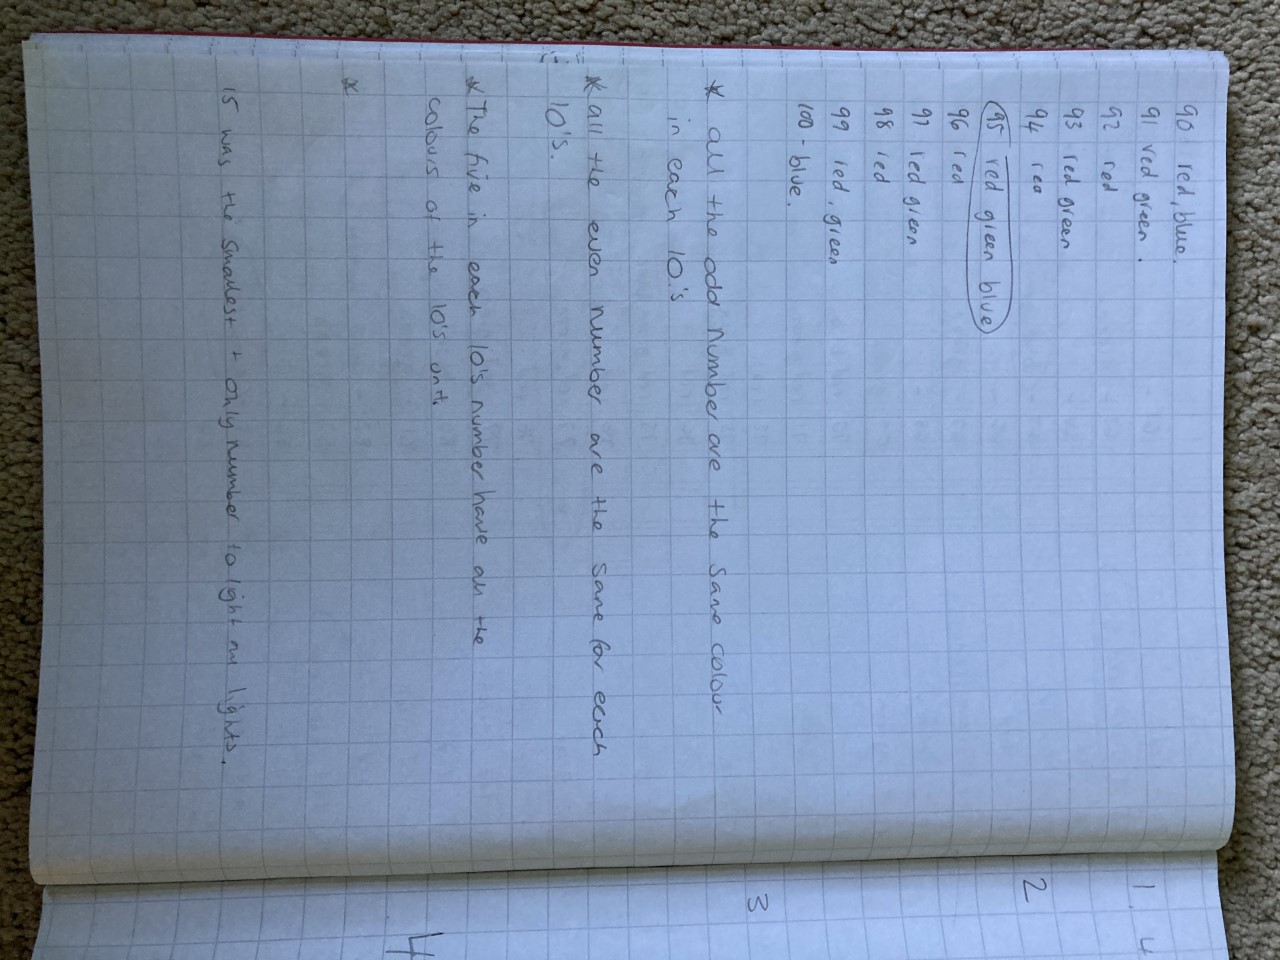 90 red, blue.
91 red green.
92 red
93 red green
94 red
95 red green blue
96 red
97 red green
98 red
99 red, green
100 - blue.
* all the odd number are the same colour
in each 10's
* all the even number are the same for each
10's.
* The five in each 10's number have all the
colours of the 10's unit.
*
15 was the smallest + only number to light all lights.
1.
2
3
4